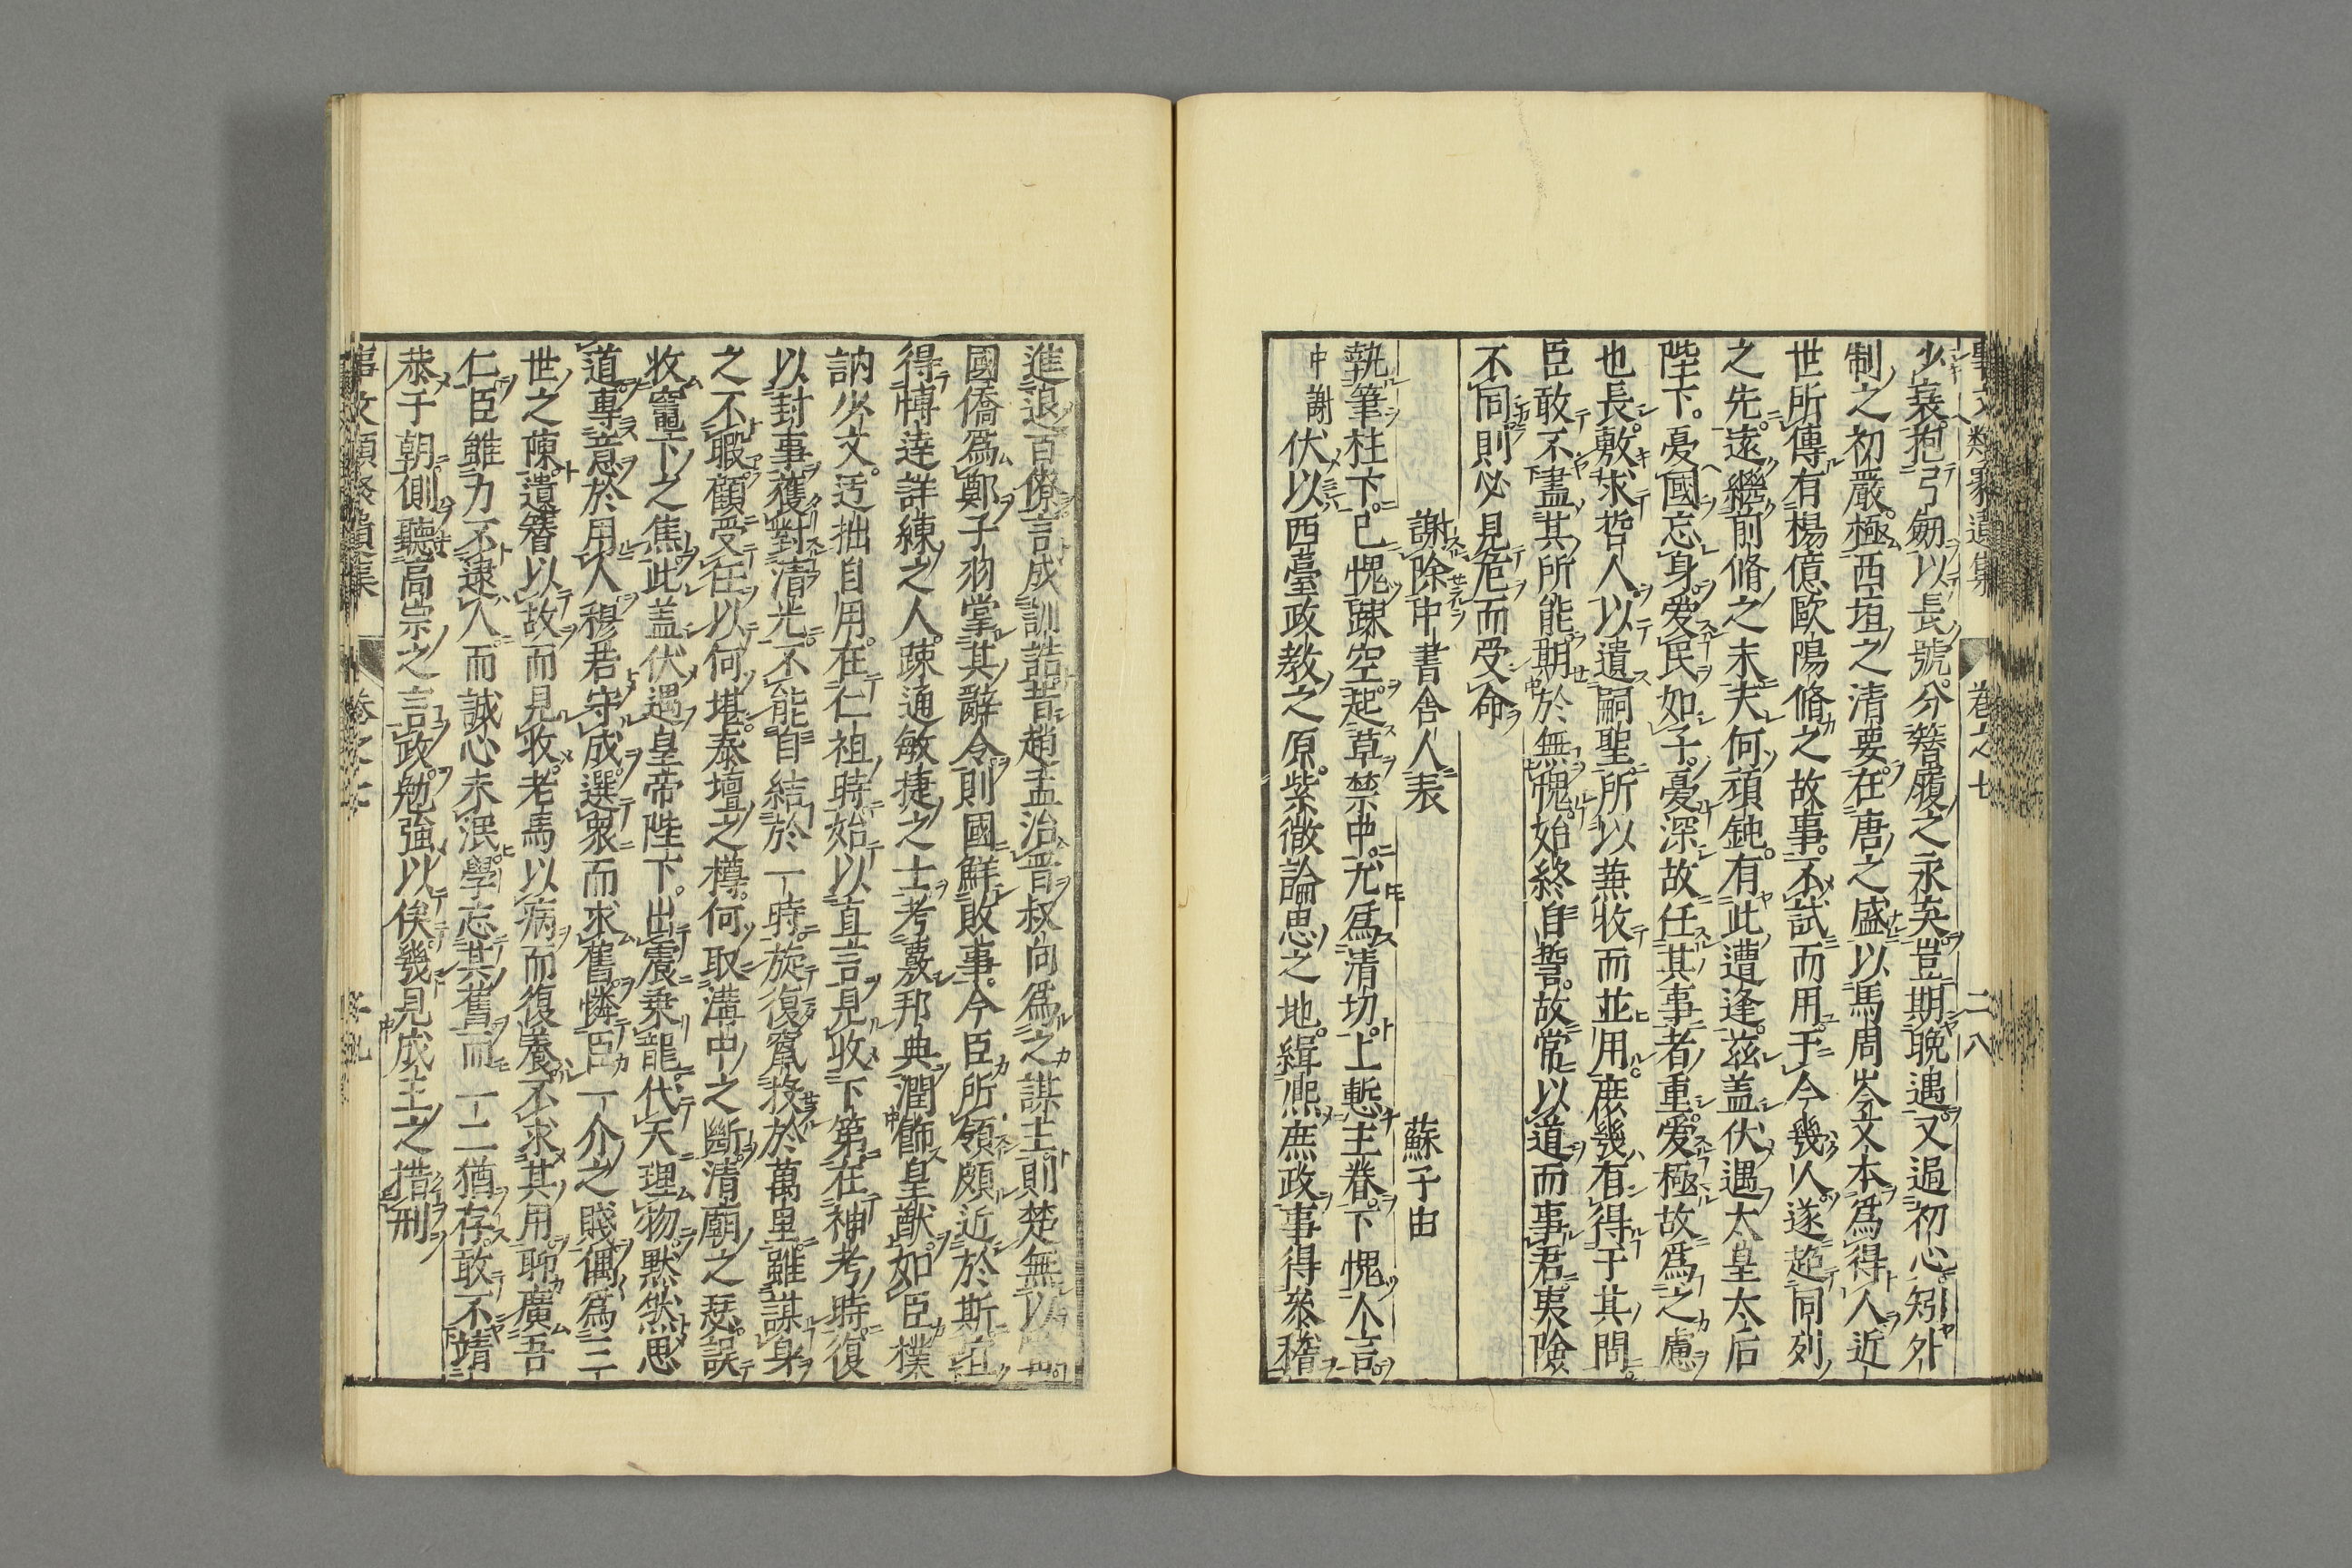 事文類聚遺集 卷之七 二八
少衰抱弓劒以長號分簪履之永矣豈期晚遇又過初心矧外
制之初嚴極西垣之清要在唐之盛以馬周岑文本爲得人近
世所傳有楊億歐陽脩之故事不試而用于今幾人遂超同列
之先遠繼前脩之末夫何頑鈍有此遭逢茲盖伏遇太皇太后
陛下憂國忘身爱民如子憂深故任其事者重爱極故爲之慮
也長敷求哲人以遺嗣聖所以兼收而並用庶幾有得于其間
臣敢不盡其所能期於無愧始終自誓故常以道而事君夷險
不同則必見危而受命
謝除中書舍人表 蘇子由
執筆柱下已愧踈空起草禁中尤爲清切上慙主眷下愧人言
中謝伏以西臺政教之原紫微論思之地緝熈庶政事得參稽
進退百僚言成訓誥昔趙孟治晋叔向爲之謀主則楚無以
國僑爲鄭子羽掌其辭令則國鮮敗事今臣所領頗近於斯
得愽達詳練之人踈通敏捷之士考覈邦典潤飾皇猷如臣樸
訥少文迂拙自用在仁祖時始以直言見收下第在神考時復
以封事獲對清光不能自結於一時旋復竄投於萬里雖謀身
之不暇顧受任以何堪泰壇之樽何取溝中之斷清廟之瑟誤
收竈下之焦此盖伏遇皇帝陛下出震乗龍代天理物默然思
道專意於用人穆君守成選衆而求舊憐臣一介之賤偶爲三
世之陳遺簪以故而見收老馬以病而復養不求其用聊廣吾
仁臣雖力不逮人而誠心未泯學忘其舊而一二猶存敢不靖
恭于朝側聽高宗之言政勉強以俟幾見成王之措刑
事文類聚遺集 卷之七